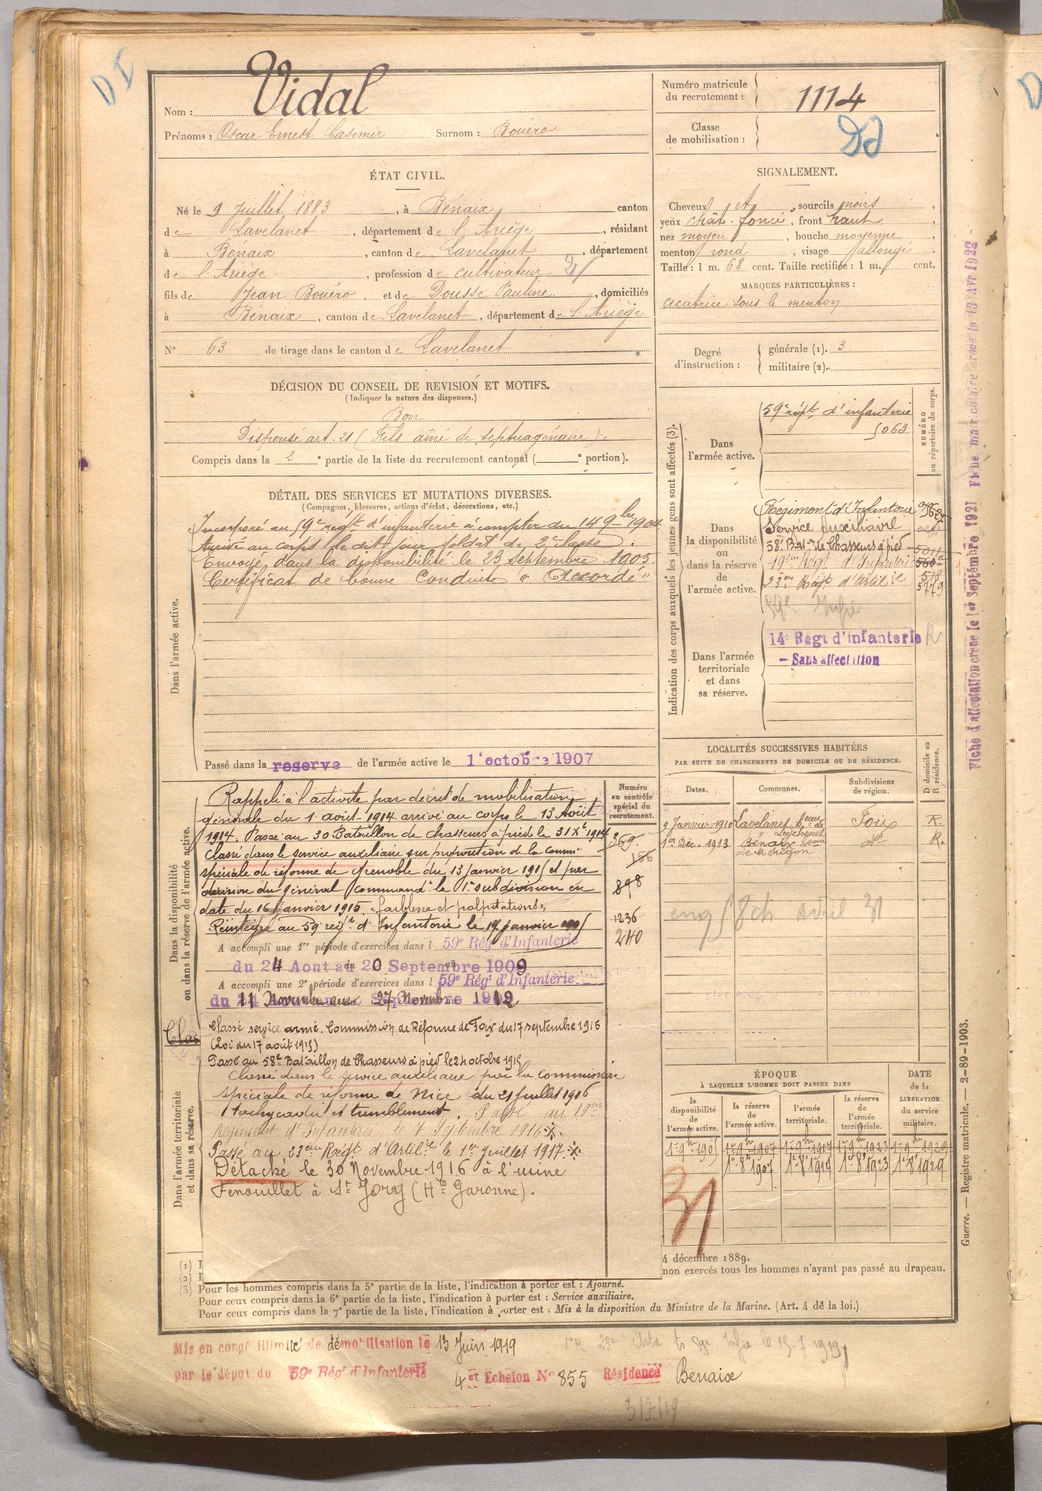 DI
Nom : Vidal
Prénoms : Oscar Ernest Casimir Surnom : Rouéro
Numéro matricule du recrutement : 1114
Classe de mobilisation :
ÉTAT CIVIL.
Né le 9 Juillet 1883, à Bénaix, canton
de Lavelanet, département de l'Ariège, résidant
à Bénaix, canton de Lavelanet, département
de l'Ariège, profession de cultivateur
fils de Jean Rouéro et de Dousse Pauline, domiciliés
à Benaix, canton de Lavelanet, département de l'Ariège
N° 63 de tirage dans le canton de Lavelanet
SIGNALEMENT.
Cheveux et sourcils noirs
yeux chât. foncé, front haut
nez moyen, bouche moyenne
menton rond, visage
Taille : 1 m. 68 cent. Taille rectifiée : 1 m. cent.
MARQUES PARTICULIÈRES :
cicatrice sous le menton
Degré d'instruction : générale (1). 3
militaire (2).
DÉCISION DU CONSEIL DE REVISION ET MOTIFS.
(Indiquer la nature des dispenses.)
Bon
Dispensé art. 21 (Fils aîné de septuagénaire).
Compris dans la 2e partie de la liste du recrutement cantonal ( e portion).
DÉTAIL DES SERVICES ET MUTATIONS DIVERSES.
(Campagnes, blessures, actions d'éclat, décorations, etc.)
Dans l'armée active.
Incorporé au 59e régt d'infanterie à compter du 14 9bre 1904
Arrivé au corps le dit jour soldat de 2e classe.
Envoyé dans la disponibilité le 23 Septembre 1905
Certificat de bonne Conduite "Accordé"
Passé dans la reserve de l'armée active le 1er octobre 1907
Dans la disponibilité ou dans la réserve de l'armée active.
Rappelé à l'activité par décret de mobilisation
générale du 1 août 1914 arrivé au corps le 13 Août
1914. Passé au 30 Bataillon de chasseurs à pied le 31 Xe 1914
Classé dans le service auxiliaire sur proposition de la comm.
spéciale de réforme de Grenoble du 13 janvier 1915 et par
décision du général Command. la 1e subdivision en
date du 16 Janvier 1915 "faiblesse et palpitations",
Réintégré au 59 régt d'Infanterie le 17 janvier 1915
A accompli une 1re période d'exercices dans l 59e Rég d'Infanterie
du 24 Aout au 20 Septembre 1909
A accompli une 2e période d'exercices dans l 59e Rég d'Infanterie
du 11 Novembre au 27 Novembre 1912
Classé service armé. Commission de Réforme de Foix du 17 septembre 1915
(Loi du 17 août 1915)
Passé au 58e Bataillon de Chasseurs à pied le 24 octobre 1915
Classé dans le service auxiliaire par la commission
spéciale de réforme de Nice du 21 juillet 1916
Tachycardie et tremblement. Passé au 19me
Régiment d'Infanterie le 7 Septembre 1916
Passé au 23eme Régt d'Artille le 1er Juillet 1917
Détaché le 30 Novembre 1916 à l'usine
Fenouillet à St Jory (Hte Garonne).
Dans l'armée territoriale et dans sa réserve.
Numéro au contrôle spécial du recrutement.
166
898
1236
240
Indication des corps auxquels les jeunes gens sont affectés (3).
NUMÉRO au répertoire du corps.
Dans l'armée active.
59e régt d'infanterie
5063
Dans la disponibilité ou dans la réserve de l'armée active.
Régiment d'Infanterie
Service Auxiliaire
58e Baton de Chasseurs à pied
19me Régt d'Infanterie
23me Régt d'Artille
59e Infie
Dans l'armée territoriale et dans sa réserve.
14e Régt d'infanterie R
— Sans affectation
Fiche d'affectation créée le 1er Septembre 1921
LOCALITÉS SUCCESSIVES HABITÉES
PAR SUITE DE CHANGEMENTS DE DOMICILE OU DE RÉSIDENCE.
Dates. Communes. Subdivisions de région. D domicile ou R résidence.
9 Janvier 1910 Lavelanet Foix R.
1er Déc. 1913 Bénaix do R.
ÉPOQUE À LAQUELLE L'HOMME DOIT PASSER DANS
DATE de la LIBÉRATION du service militaire.
la disponibilité de l'armée active. la réserve de l'armée active. l'armée territoriale. la réserve de l'armée territoriale.
1er 8e 1907 1er 8e 1923 1er 8e 1929
31
4 décembre 1889.
non exercés tous les hommes n'ayant pas passé au drapeau.
(1)
(2)
(3) Pour les hommes compris dans la 5e partie de la liste, l'indication à porter est : Ajourné.
Pour ceux compris dans la 6e partie de la liste, l'indication à porter est : Service auxiliaire.
Pour ceux compris dans la 7e partie de la liste, l'indication à porter est : Mis à la disposition du Ministre de la Marine. (Art. 4 de la loi.)
Guerre. — Registre matricule. — 2-89-1903.
Mis en congé illimité de démobilisation le 13 Juin 1919
par le dépot du 59e Régt d'Infanterie 4 et Echelon N° 855 Résidence Benaix